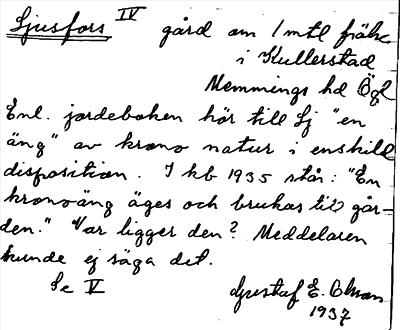 Ljusfors IV gård om 1 mtl frälse
i Kullerstad
Memmings hd Ögl
Enl. jordeboken hör till Lj "en
äng" av krono natur i enskild
disposition. I kb 1935 står: "En
kronoäng äges och brukas till går-
den." Var ligger den? Meddelaren
kunde ej säga det.
Se V Gustaf E. Olsson
1937